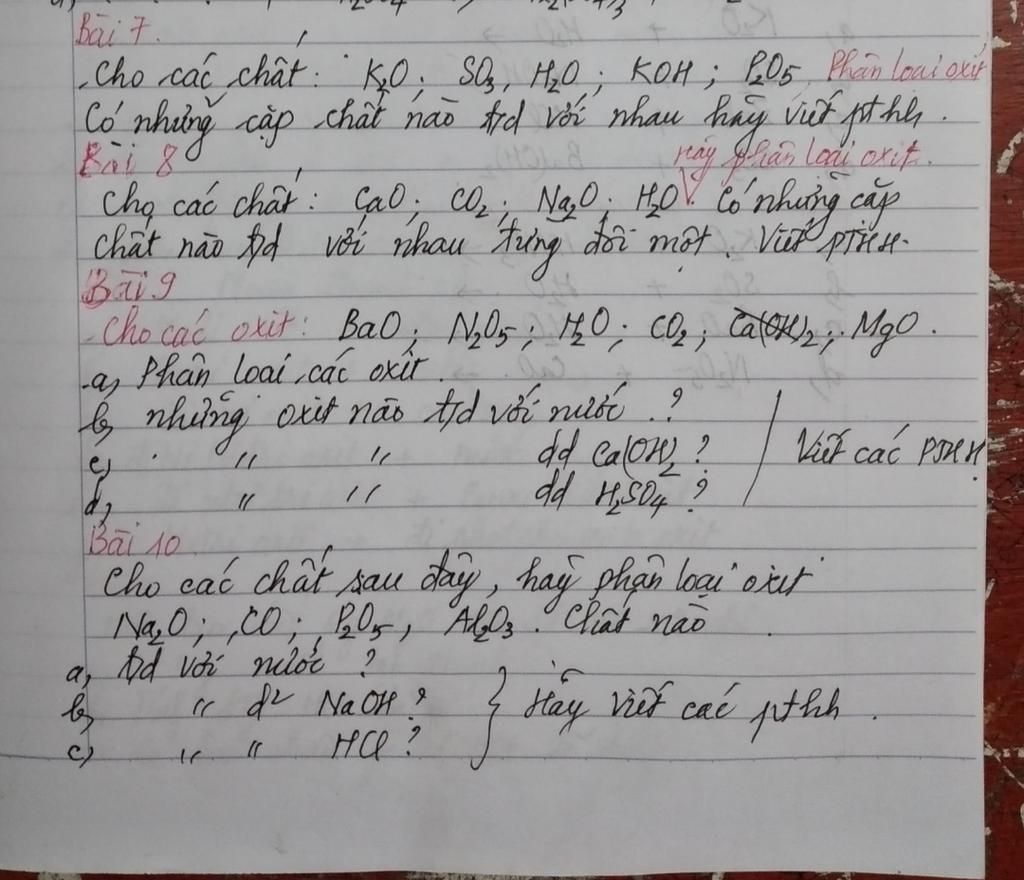 Bài 7.
Cho các chất: K₂O; SO₃, H₂O; KOH; P₂O₅ Phân loại oxit
Có những cặp chất nào t/d với nhau hãy viết pthh.
Bài 8
Hãy phân loại oxit.
Cho các chất: CaO; CO₂; Na₂O; H₂O. Có những cặp
chất nào t/d với nhau từng đôi một. Viết PTHH.
Bài 9
- Cho các oxit: BaO; N₂O₅; H₂O; CO₂; Ca(OH)₂; MgO.
a, Phân loại các oxit.
b, những oxit nào t/d với nước?
c, " " dd Ca(OH)₂? Viết các PTHH.
d, " " dd H₂SO₄?
Bài 10
Cho các chất sau đây, hãy phân loại oxit
Na₂O; CO; P₂O₅, Al₂O₃. Chất nào
a, t/d với nước?
b, " d² NaOH? Hãy viết các pthh.
c, " " HCl?